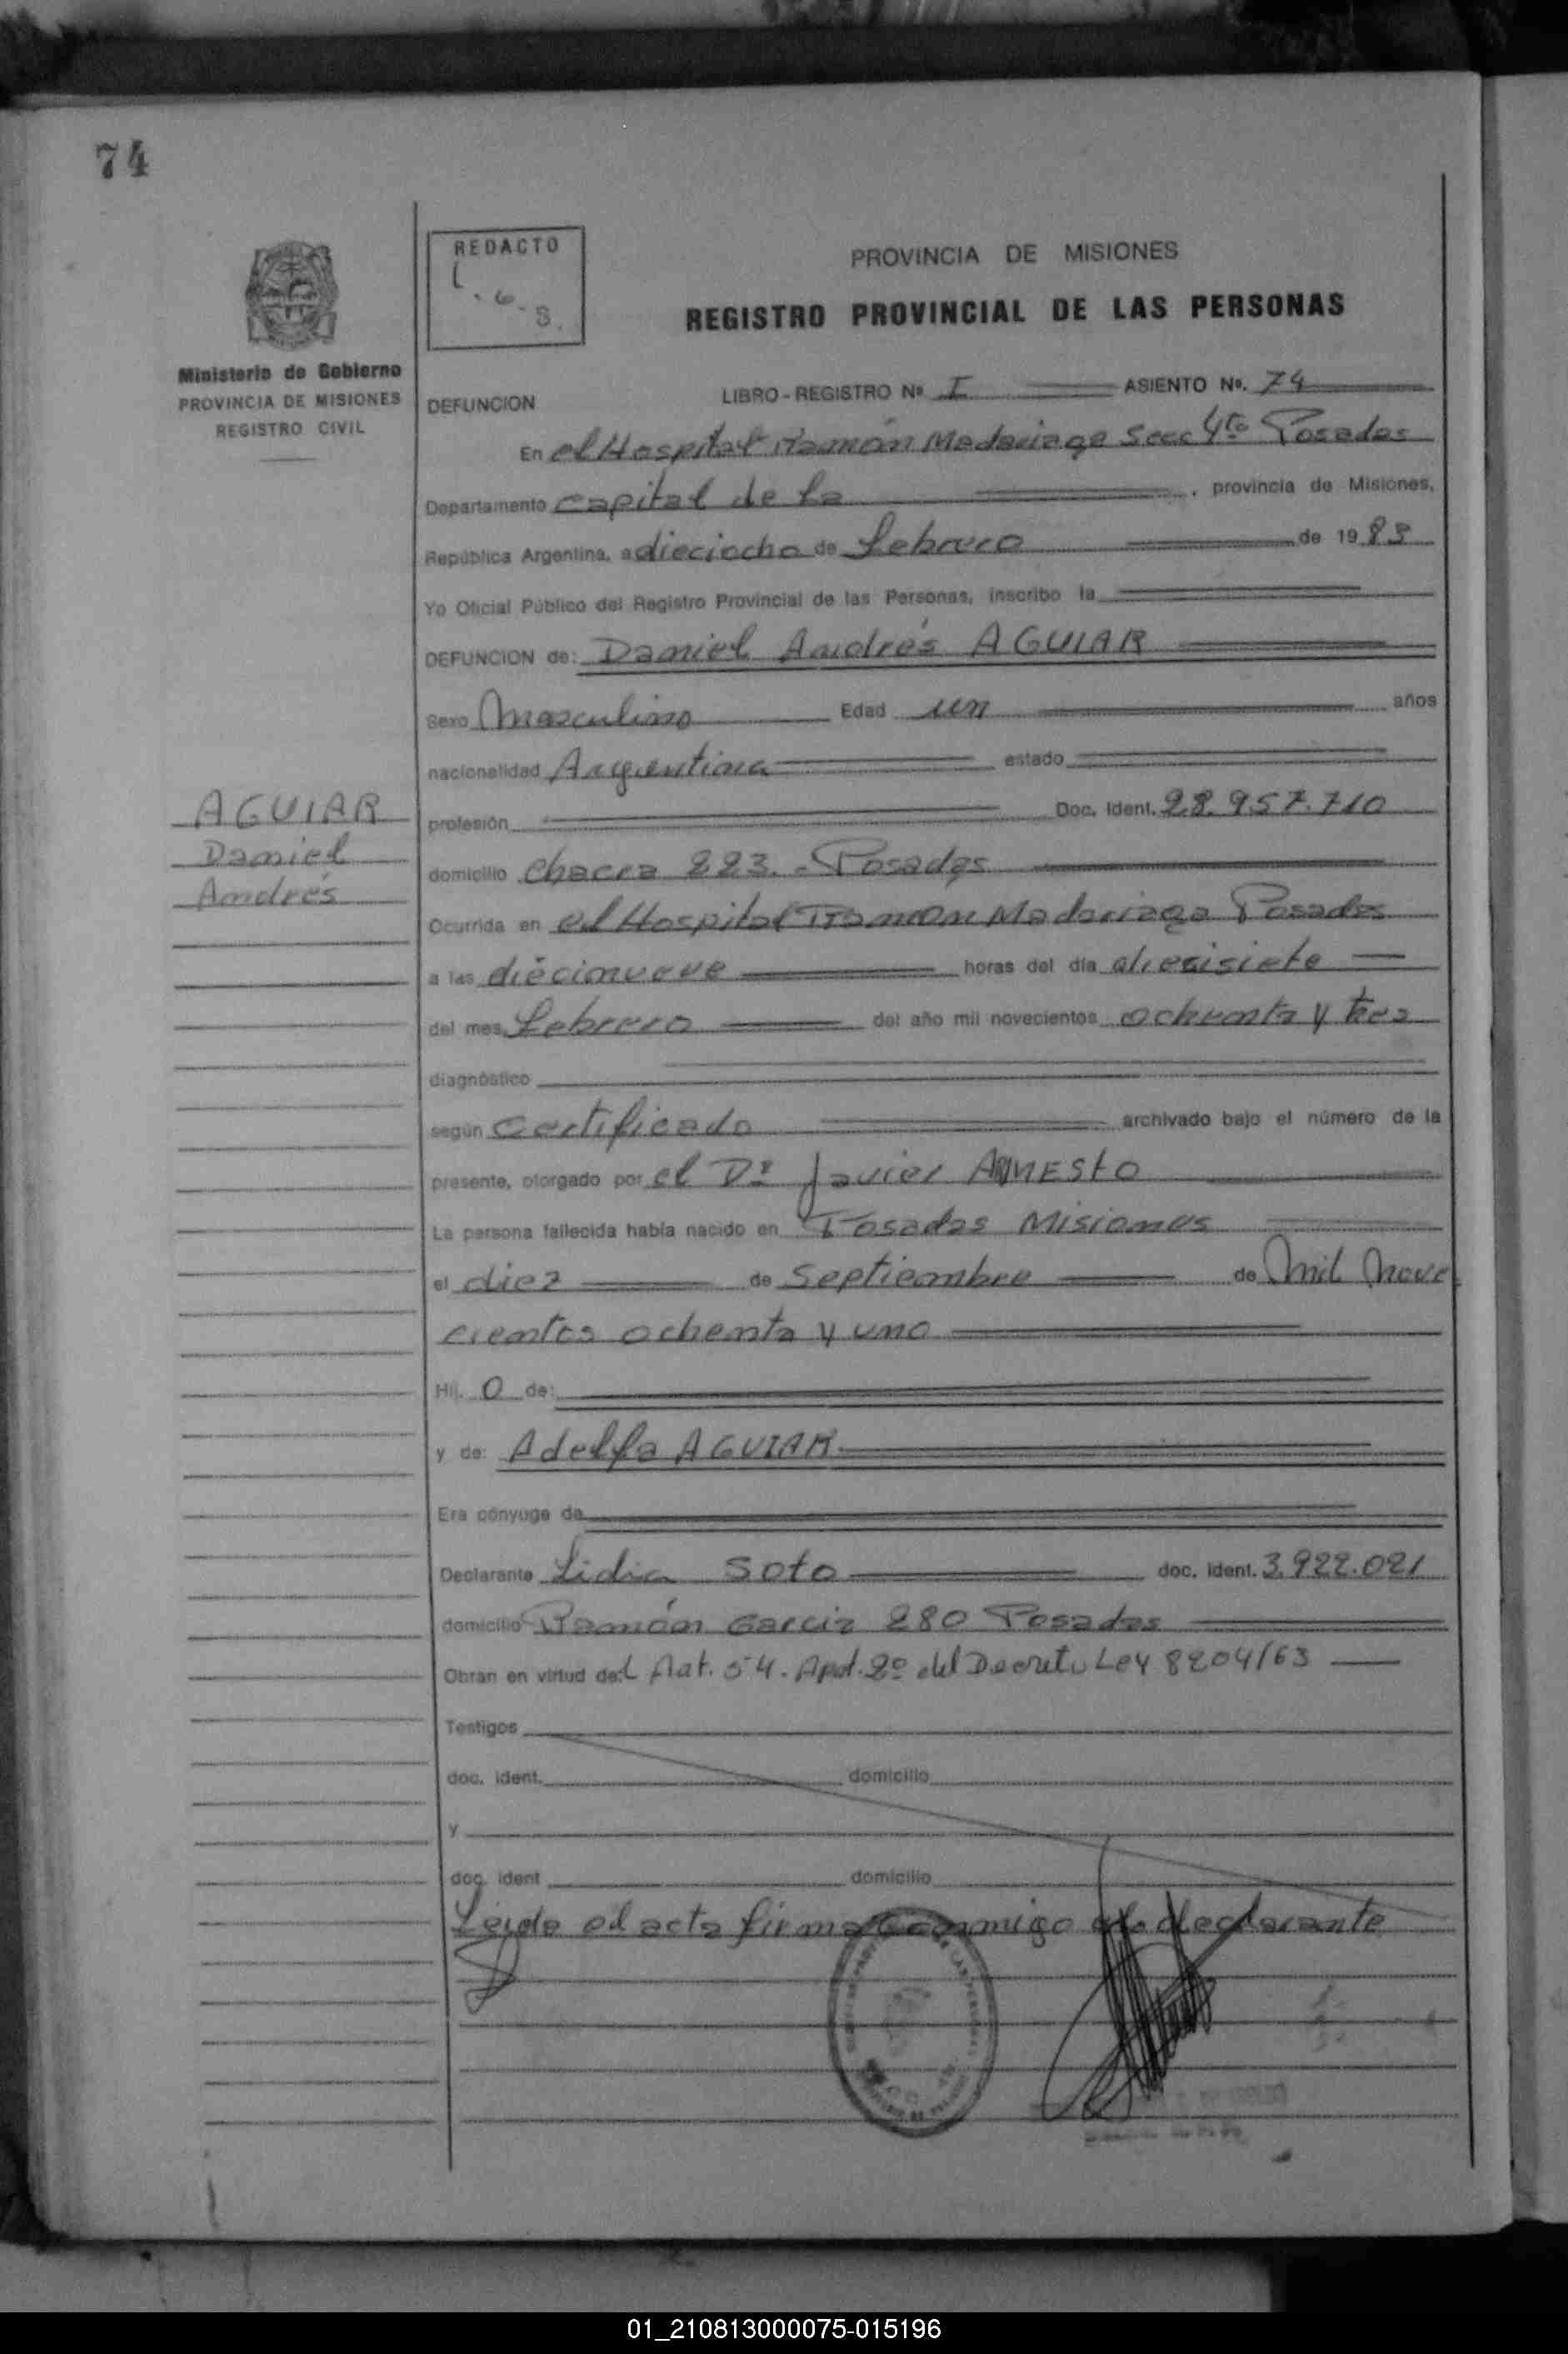 74
REDACTO
PROVINCIA DE MISIONES
REGISTRO PROVINCIAL DE LAS PERSONAS
Ministerio de Gobierno
PROVINCIA DE MISIONES
REGISTRO CIVIL
DEFUNCION
LIBRO - REGISTRO Nº I ASIENTO Nº. 74
En el Hospital Ramón Madariaga Secc 4ta Posadas
Departamento Capital de la , provincia de Misiones,
República Argentina, a dieciocho de febrero de 1983
Yo Oficial Público del Registro Provincial de las Personas, inscribo la
DEFUNCION de: Daniel Andrés AGUIAR
Sexo Masculino Edad un años
nacionalidad Argentina estado
AGUIAR
Daniel
Andrés
profesión Doc. Ident. 28.957.710
domicilio Chacra 223. - Posadas
Ocurrida en el Hospital Ramón Madariaga Posadas
a las diecinueve horas del día diecisiete
del mes febrero del año mil novecientos ochenta y tres
diagnóstico
según Certificado archivado bajo el número de la
presente, otorgado por el Dr Javier
La persona fallecida había nacido en Posadas Misiones
el diez de Septiembre de Mil Nove
cientos ochenta y uno
Hij. o de:
y de: Adelfa AGUIAR
Era cónyuge de
Declarante Lidia Soto doc. ident. 3.922.021
domicilio Ramón Garcia 280 Posadas
Obran en virtud del Art. 54. Apt. 2º del Decreto Ley 8204/63
Testigos
doc. ident. domicilio
y
doc. ident domicilio
Leida el acta firma conmigo la declarante
01_210813000075-015196